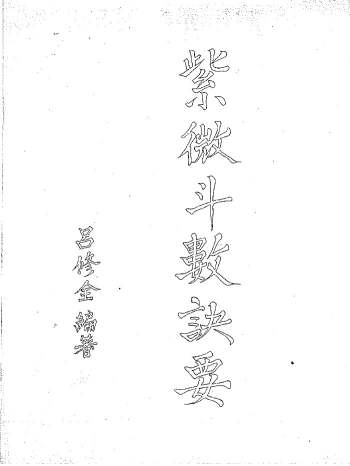 紫微斗數訣要
呂修全編著